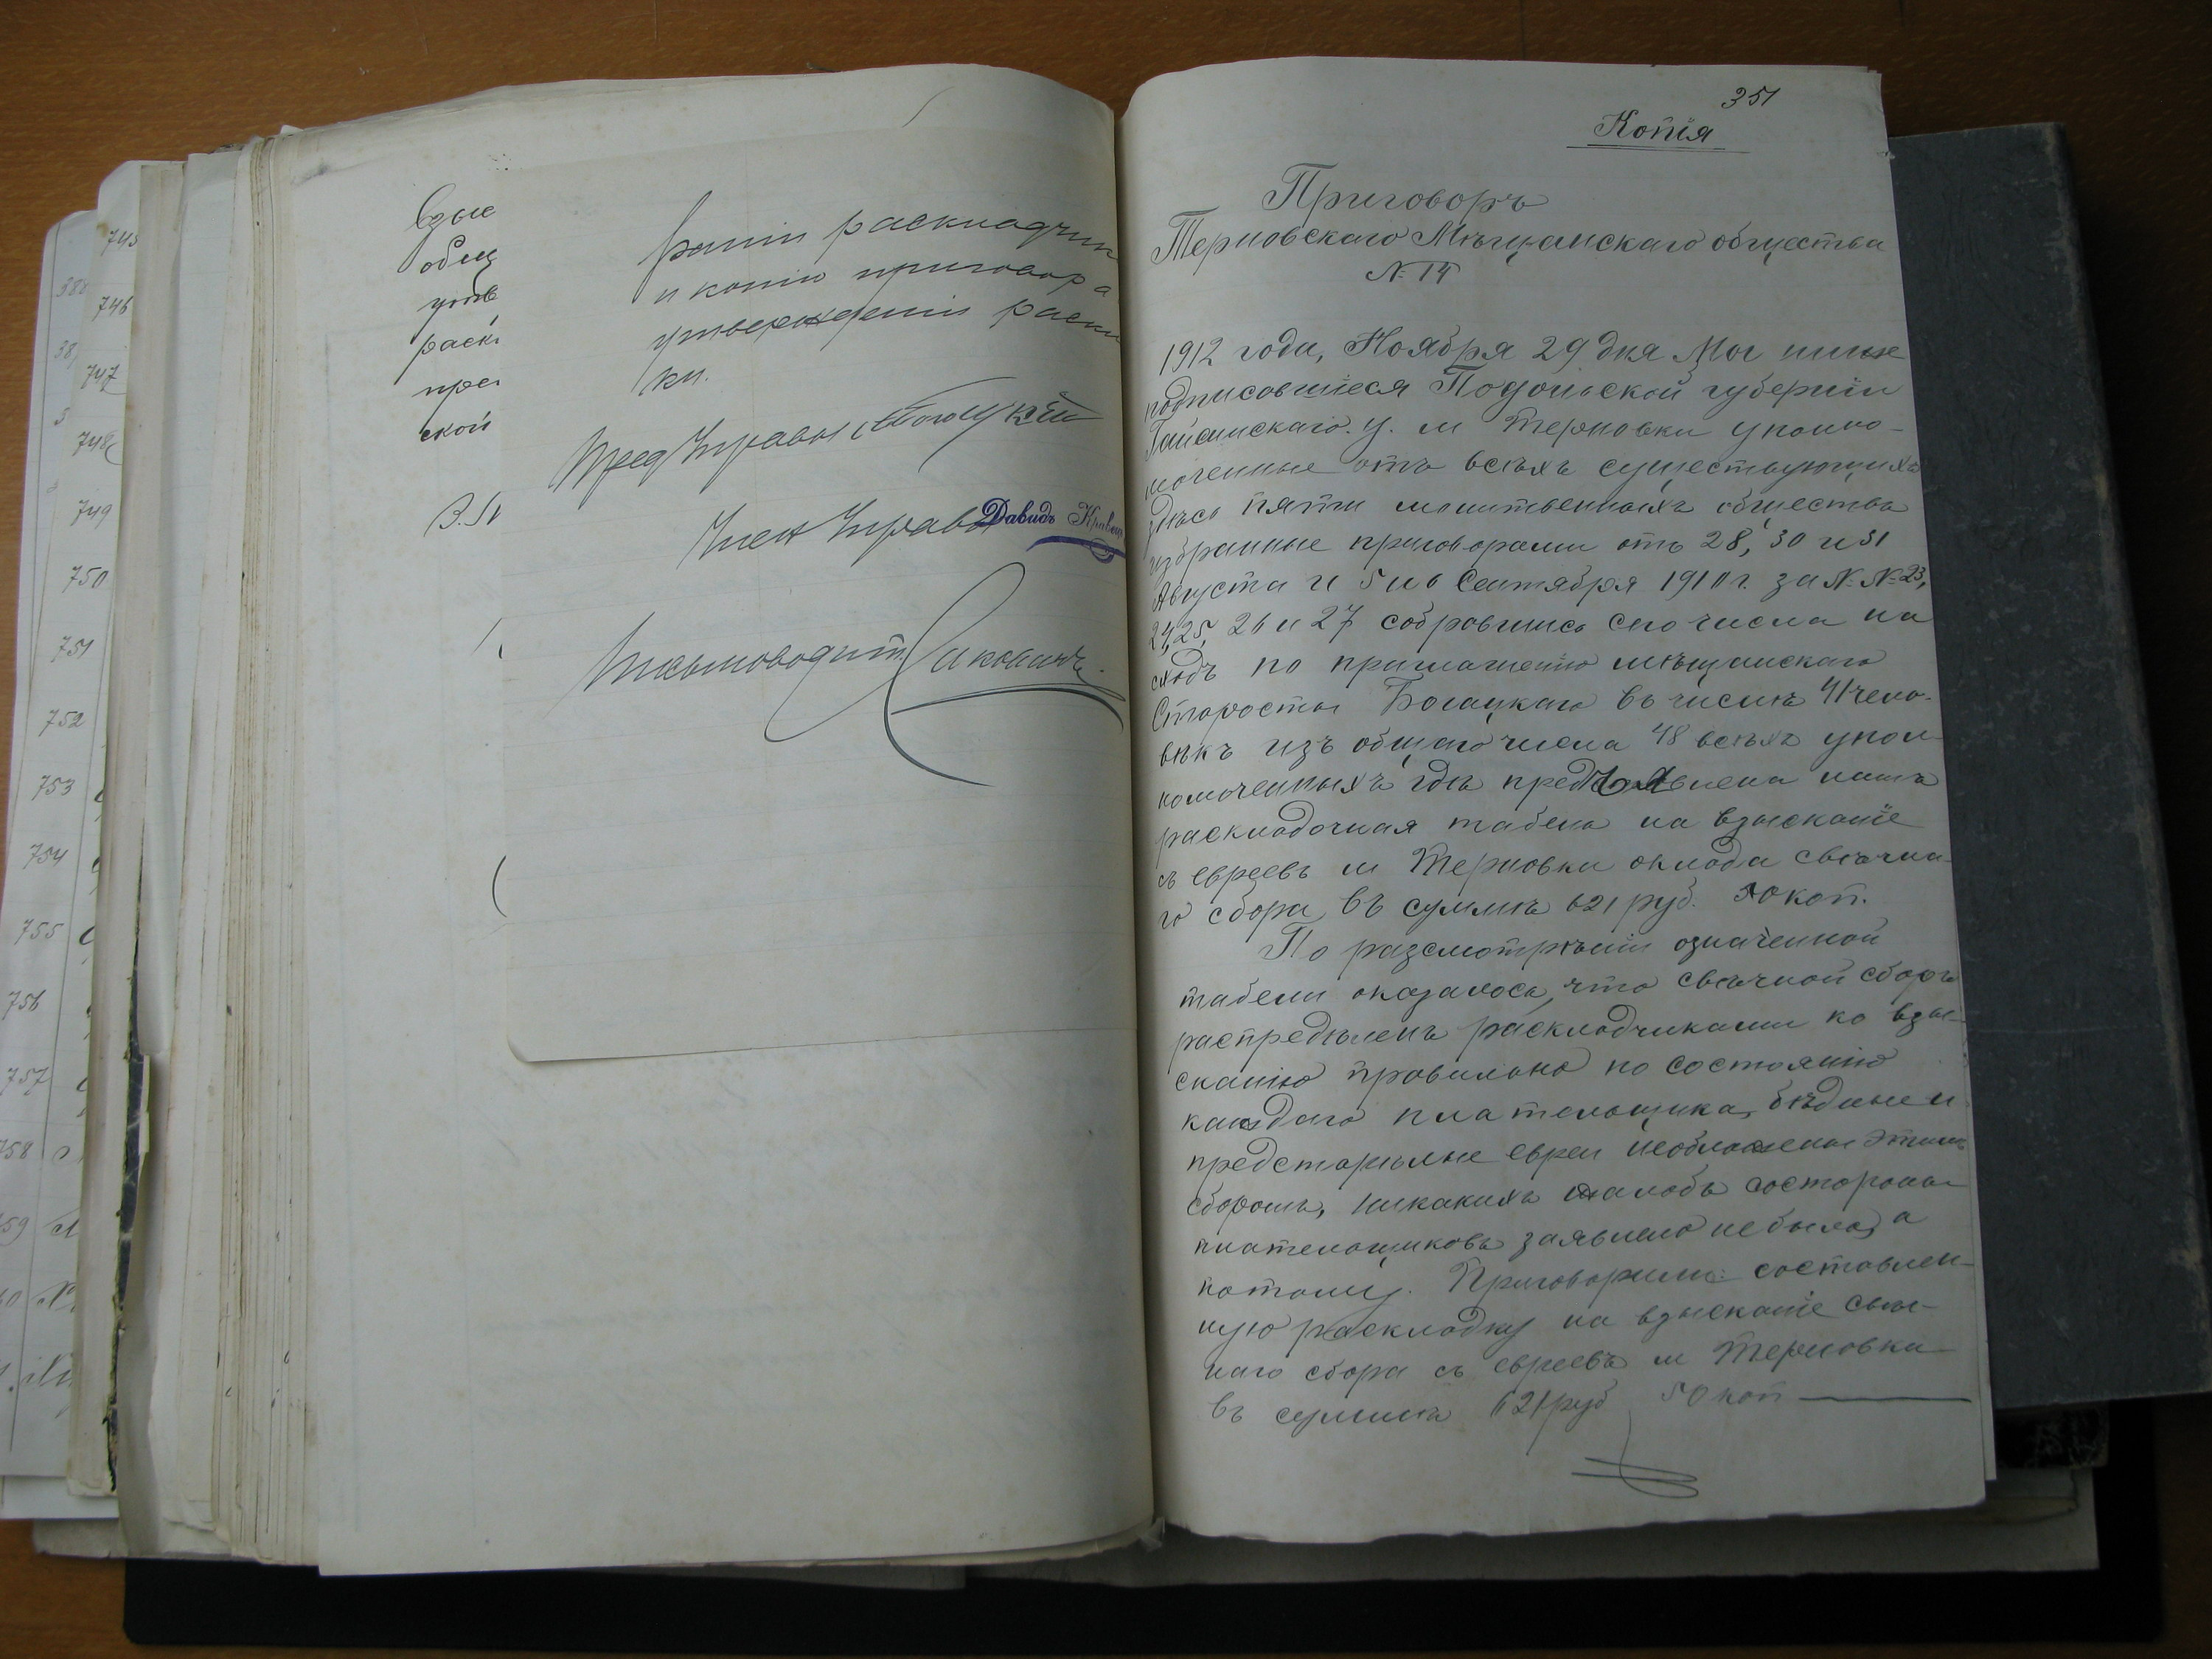 745
746
747
748
749
750
751
752
753
754
755
756
757
758
59
взыс
общ
утв
раск
пре
ской
браніи раскладчик
и копію приговора
утвержденіи раскл
ки.
Пред Управы
Член Управы Давидъ Кравец
Письмоводит
351
Копія
Приговоръ
Терновскаго Мѣщанскаго общества
№ 14
1912 года, Ноября 29 дня Мы ниже
подписавшіеся Подольской губерніи
Гайсинскаго у. м Терновки уполно-
моченные отъ всѣхъ существующихъ
здѣсь пяти молитвенныхъ обществъ
избранные приговорами отъ 28, 30 и 31
Августа и 5 и 6 Сентября 1910 г. за №№ 23,
24, 25, 26 и 27 собравшись сего числа на
сходъ по приглашенію мѣщанскаго
Старосты Богацкаго въ числѣ 41 чело-
вѣкъ изъ общаго числа 48 всѣхъ упол-
номоченныхъ гдѣ предъявлена намъ
раскладочная табель на взысканіе
съ евреевъ м Терновки оклада свѣчна-
го сбора въ суммѣ 621 руб. 50 коп.
По разсмотрѣніи означенной
табели оказалось, что свѣчной сборъ
распредѣленъ раскладчиками ко взы-
сканію правильно по состоянію
каждаго плательщика, бѣдные и
престарѣлые евреи необложены этимъ
сборомъ, никакихъ жалобъ состороны
плательщиковъ заявлено небыло, а
потому. Приговорили: составлен-
ную раскладку на взысканіе свѣч-
наго сбора съ евреевъ м Терновки
въ суммѣ 621 руб 50 коп